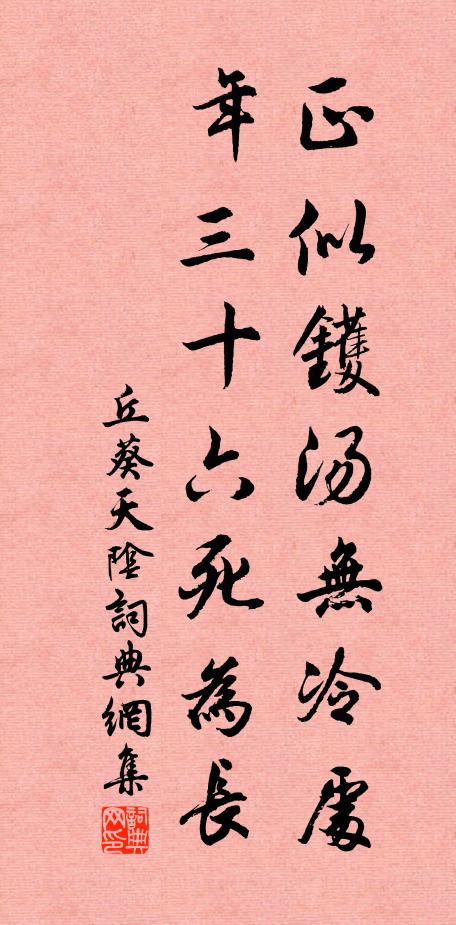 正似鑊湯無冷處
年三十六死為長
丘葵天陰詞典網集
詞典網印